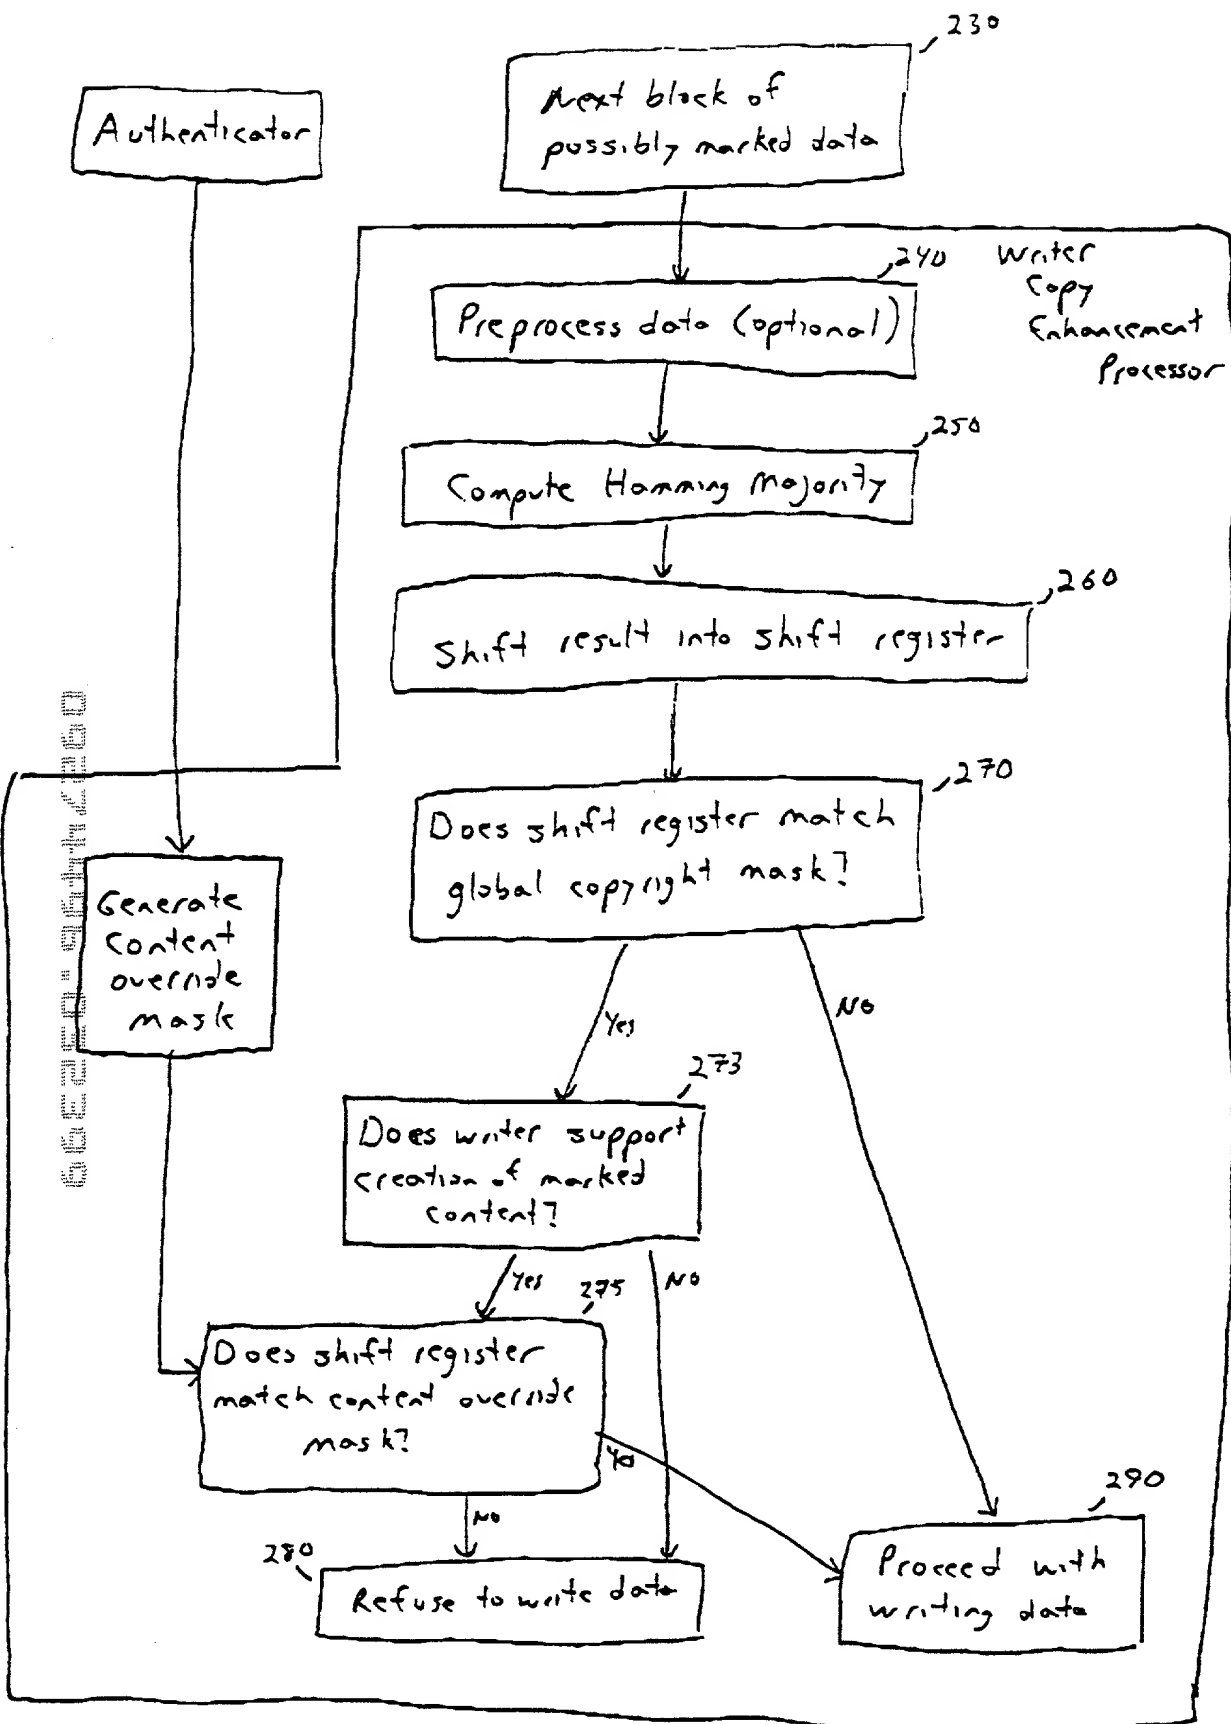 230
Authenticator
Next block of
possibly marked data
240
Writer
Copy
Enhancement
Processor
Preprocess data (optional)
250
Compute Hamming Majority
260
Shift result into shift register
270
Does shift register match
global copyright mask?
Generate
content
override
mask
Yes
No
273
Does writer support
creation of marked
content?
Yes
275
No
Does shift register
match content override
mask?
No
280
290
Refuse to write data
Proceed with
writing data